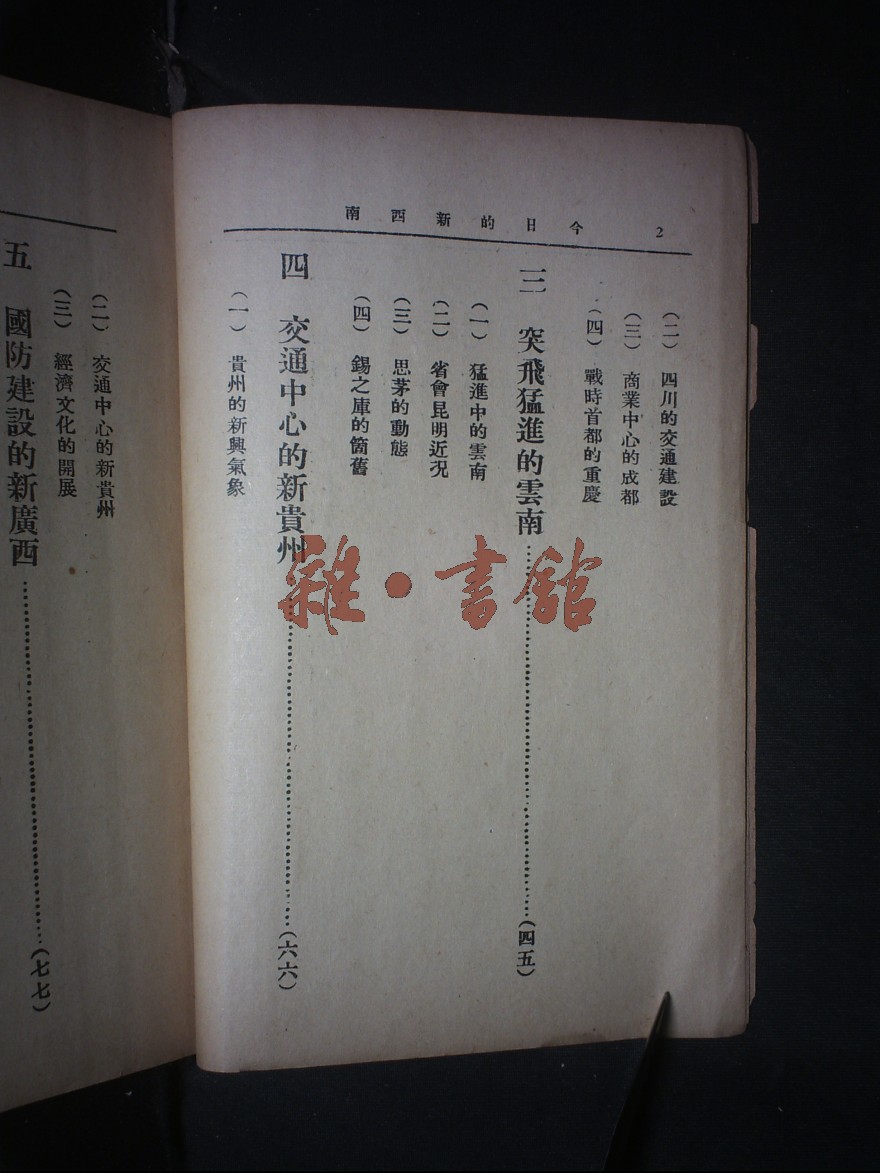 2 今日的新西南
(二) 四川的交通建設
(三) 商業中心的成都
(四) 戰時首都的重慶
三 突飛猛進的雲南……(四五)
(一) 猛進中的雲南
(二) 省會昆明近況
(三) 思茅的動態
(四) 錫之庫的箇舊
四 交通中心的新貴州……(六六)
(一) 貴州的新興氣象
(二) 交通中心的新貴州
(三) 經濟文化的開展
五 國防建設的新廣西……(七七)
雜·書館